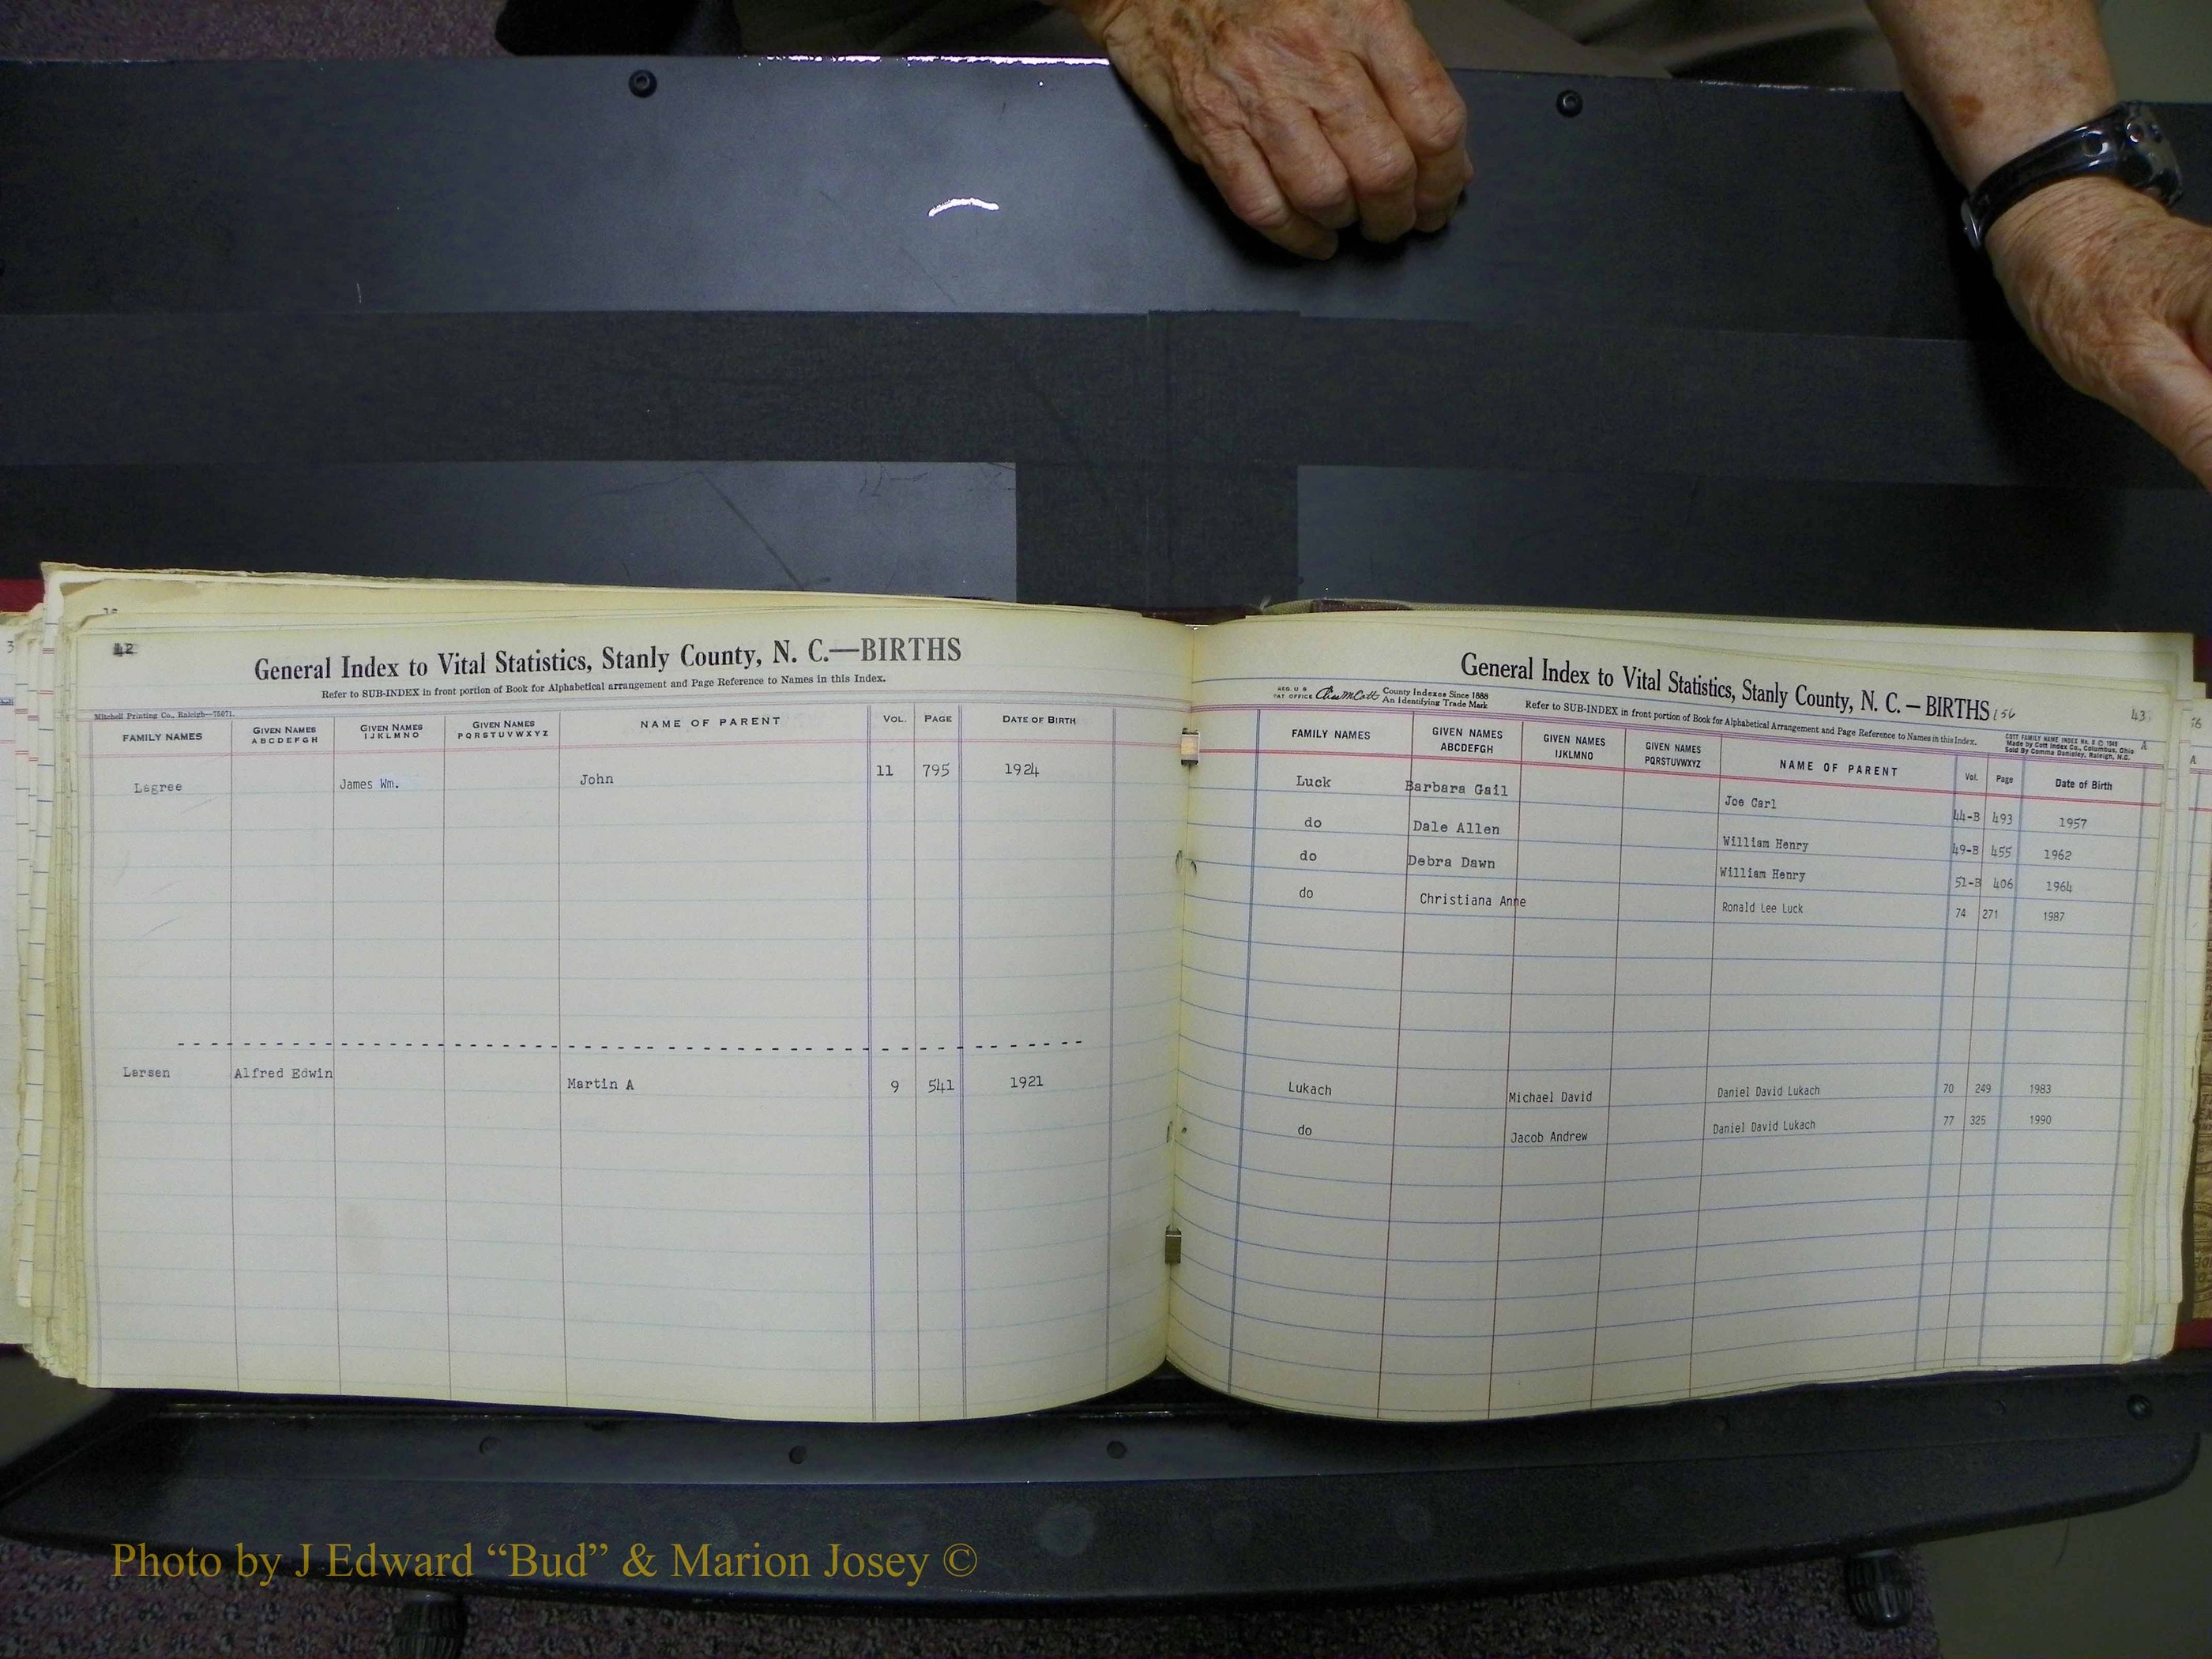 42
General Index to Vital Statistics, Stanly County, N. C.—BIRTHS
Refer to SUB-INDEX in front portion of Book for Alphabetical arrangement and Page Reference to Names in this Index.
Mitchell Printing Co., Raleigh—75071.
FAMILY NAMES GIVEN NAMES ABCDEFGH GIVEN NAMES IJKLMNO GIVEN NAMES PQRSTUVWXYZ NAME OF PARENT VOL. PAGE DATE OF BIRTH
Lagree James Wm. John 11 795 1924
Larsen Alfred Edwin Martin A 9 541 1921
General Index to Vital Statistics, Stanly County, N. C. — BIRTHS 156
43
REG. U S PAT OFFICE
County Indexes Since 1888
An Identifying Trade Mark
Refer to SUB-INDEX in front portion of Book for Alphabetical Arrangement and Page Reference to Names in this Index.
COTT FAMILY NAME INDEX No. 8 © 1948 A
Made by Cott Index Co., Columbus, Ohio
Sold By Commie Raleigh, N.C.
FAMILY NAMES GIVEN NAMES ABCDEFGH GIVEN NAMES IJKLMNO GIVEN NAMES PQRSTUVWXYZ NAME OF PARENT Vol. Page Date of Birth
Luck Barbara Gail Joe Carl 44-B 493 1957
do Dale Allen William Henry 49-B 455 1962
do Debra Dawn William Henry 51-B 406 1964
do Christiana Anne Ronald Lee Luck 74 271 1987
Lukach Michael David Daniel David Lukach 70 249 1983
do Jacob Andrew Daniel David Lukach 77 325 1990
Photo by J Edward “Bud” & Marion Josey ©